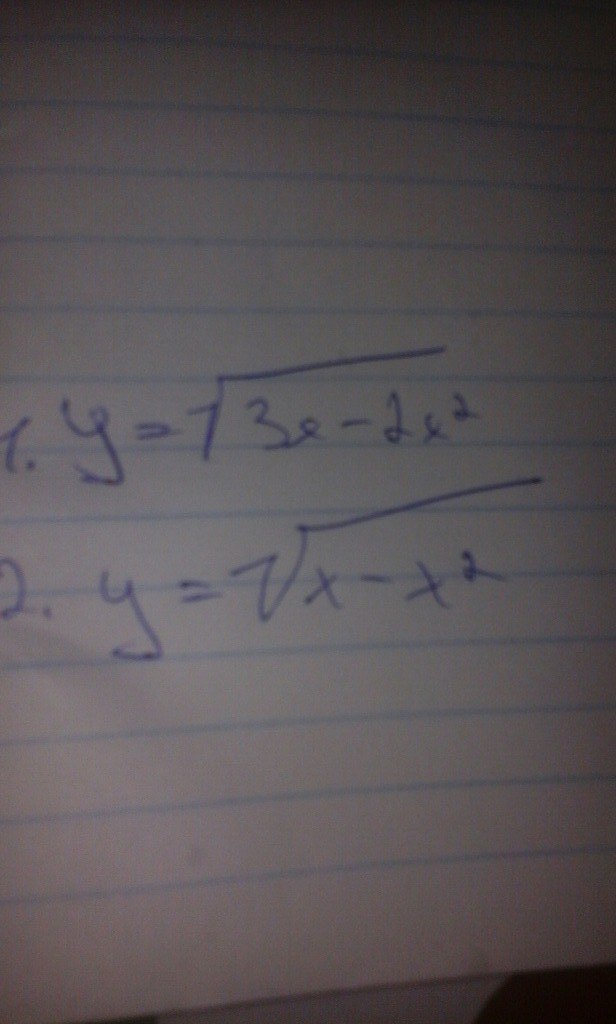 1. y = √3x - 2x²
2. y = √x - x²